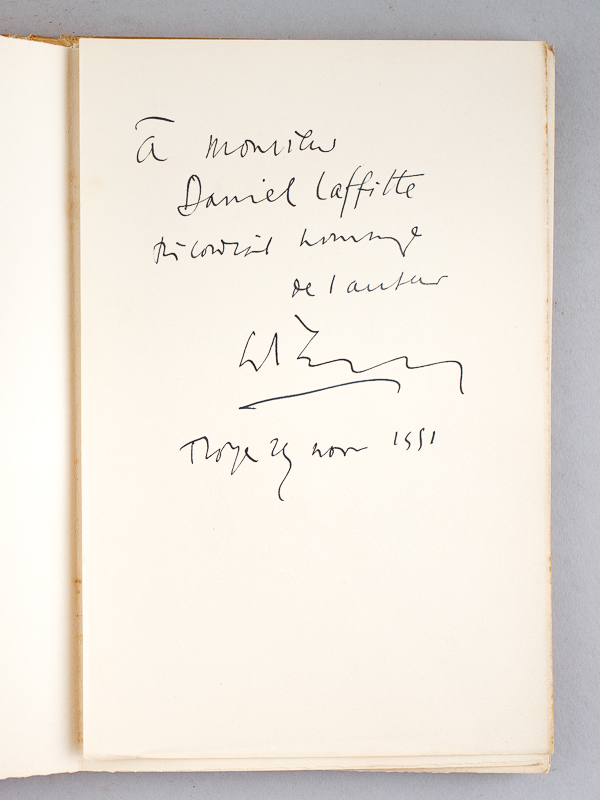 À Monsieur
Daniel Laffitte
très cordial hommage
de l'auteur
Troyes 29 nov 1951